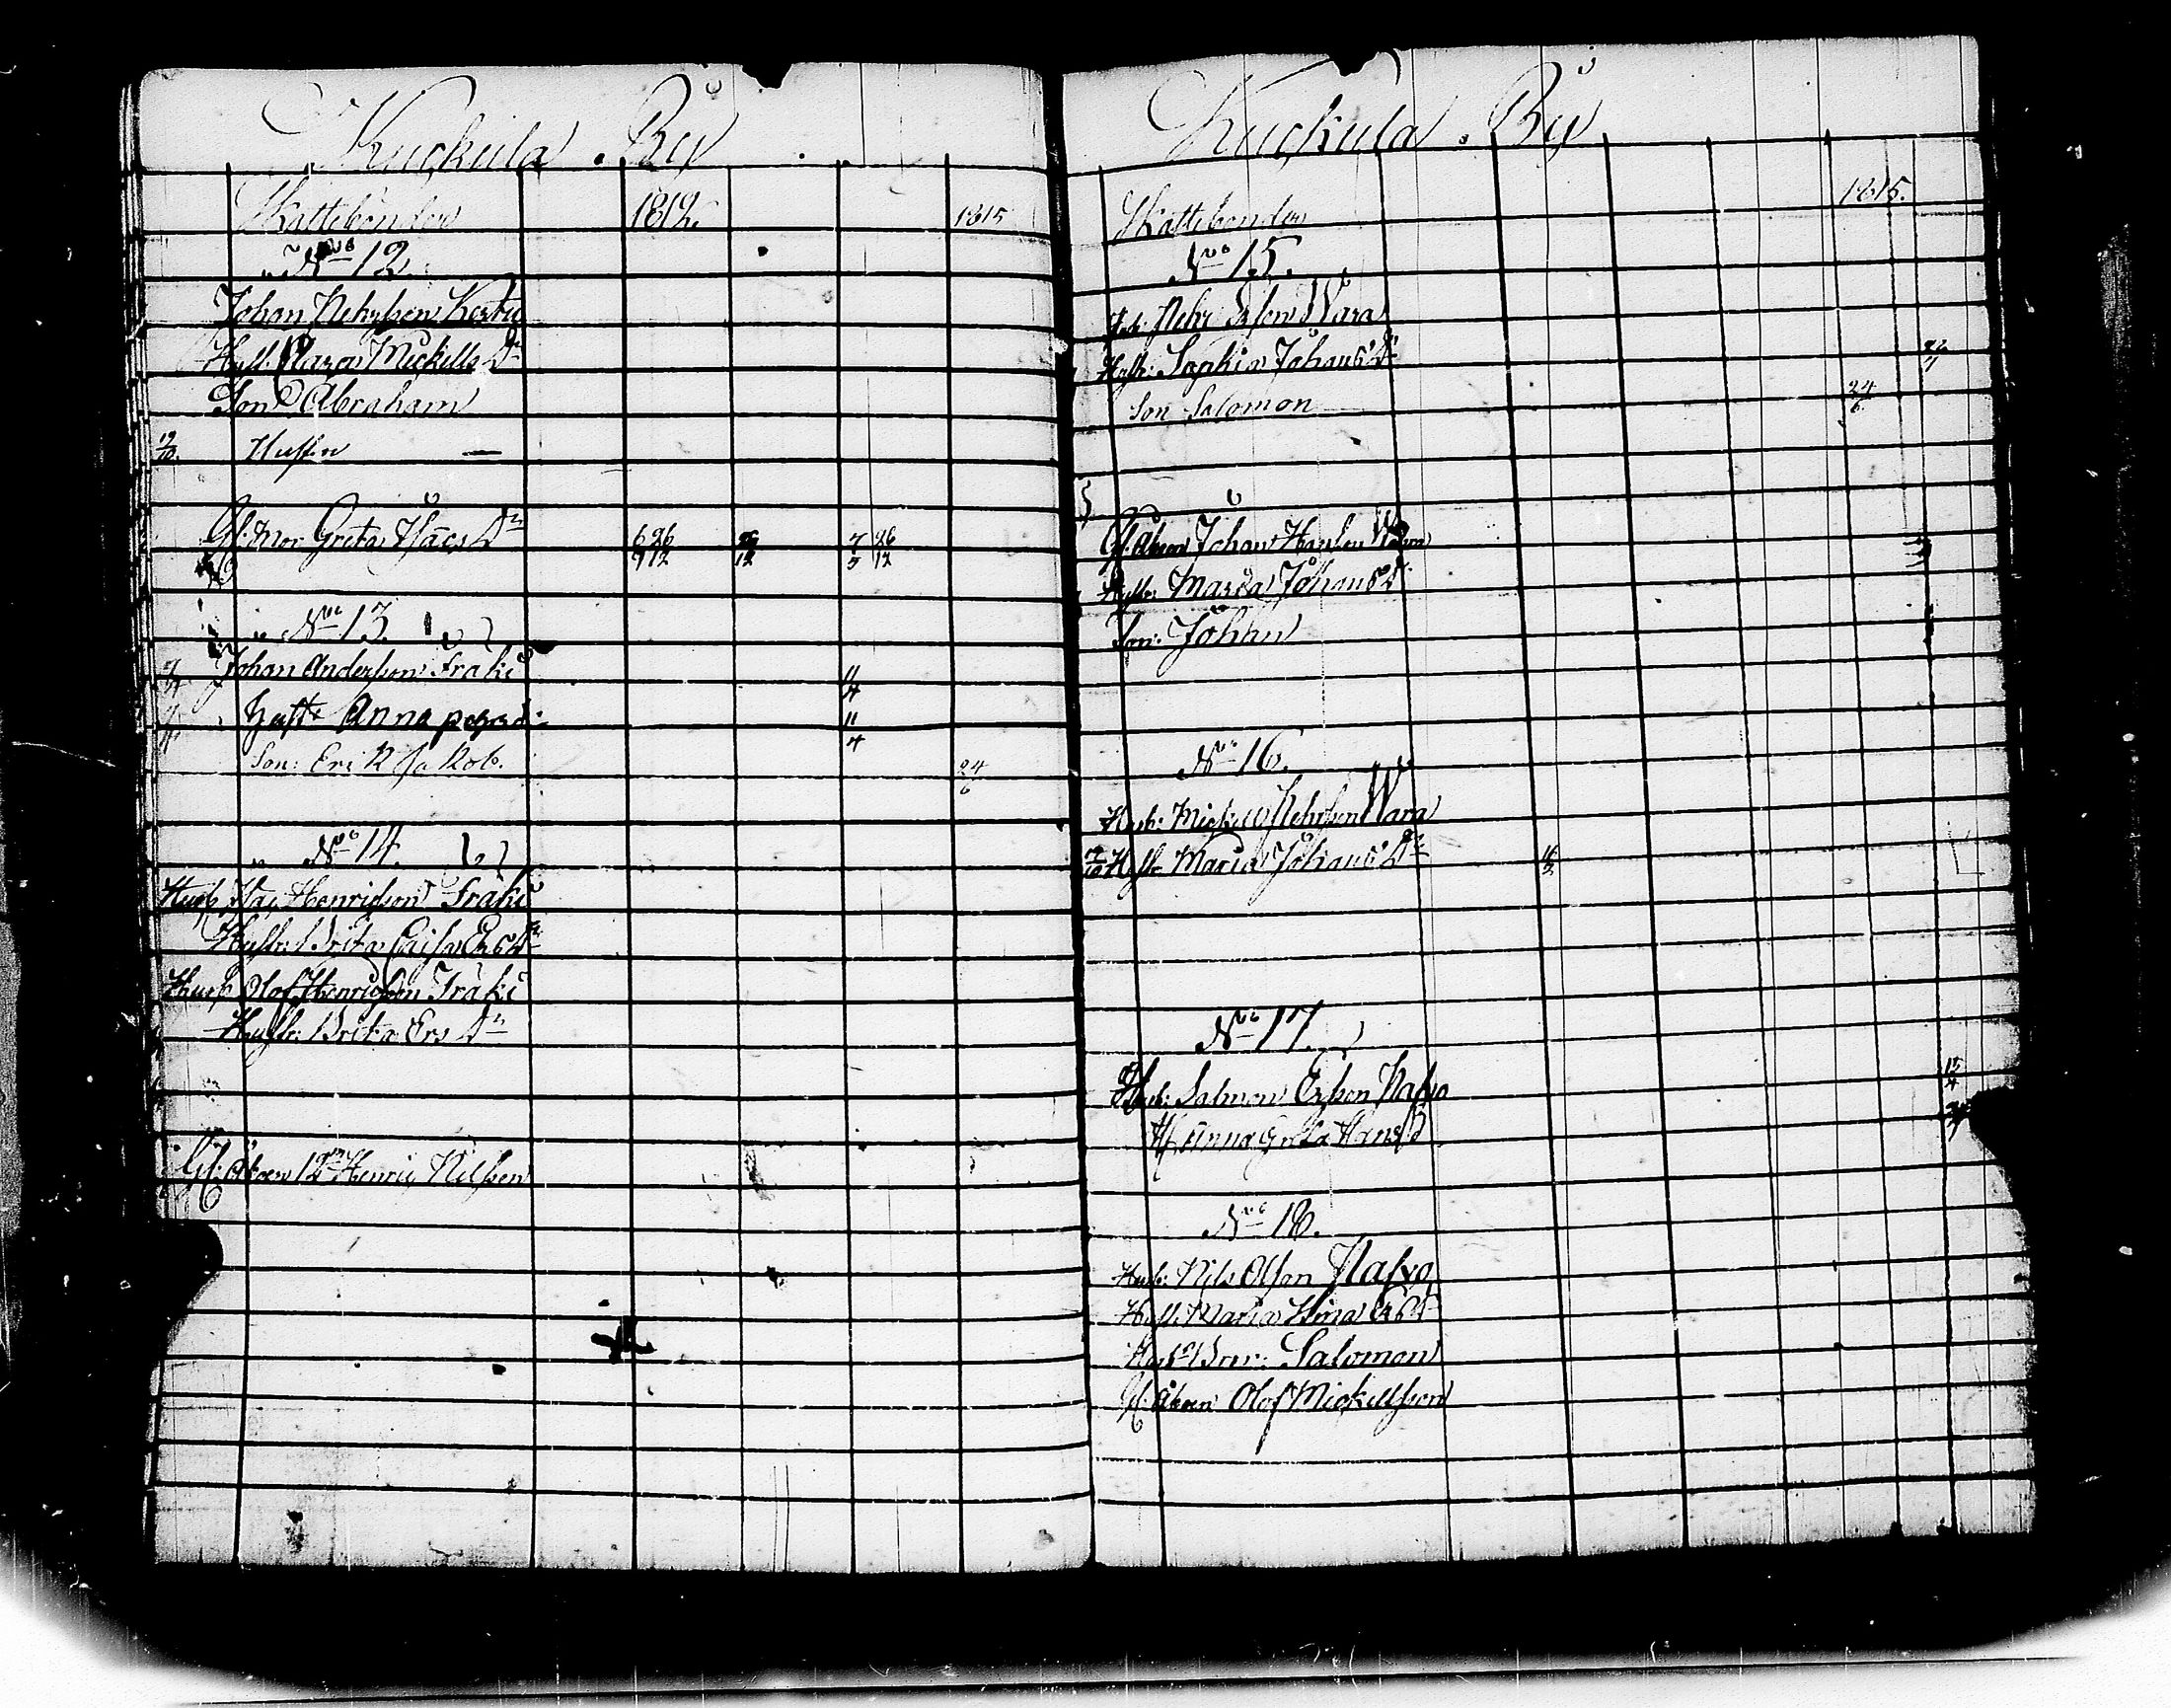 Kuckula . By
Skattebönder 1812. 1815
No 12.
Johan Pehrsson Kertu
Hust. Maria Mickells Dr
Son Abraham
19/10. Hustru —
Gl. Mor Greta Isacs Dr 6/9 26/12 26/12 7/5 26/12
No 13.
Johan Andersson Fraki 11/4
Hustr Anna persd: 11/4
Son: Erik Jakob. 24/6
No 14.
Husb Isac Henricsson Fraki
Hustr: Brita Caisa Ers Dr
Husb Olof Henricsson Fraki
Hustr: Brita Ers Dr
Gl: Åboen 12m Henric Nilsson
Kuckula . By
Skattebönder 1815.
No 15.
Husb: Pehr Ersson Wara
Hustr: Sophia Johans Dr 26/7
Son Salomon 24/6.
Gl. Åboen Johan Hansson Wara
Hustr: Maria Johans Dr
Son: Johan
No 16.
Husb: Mickel Pehrsson Wara
Hustr Maria Johans Dr 16/2
No 17.
Husb: Salmon Ersson Nasso 15/4
H. Anna Greta Hans D
No 18.
Husb: Nils Olsson Nasso
Hust: Maria Stina Ers Dr
Salomon
Gl: Åboen Olof Mickellsson